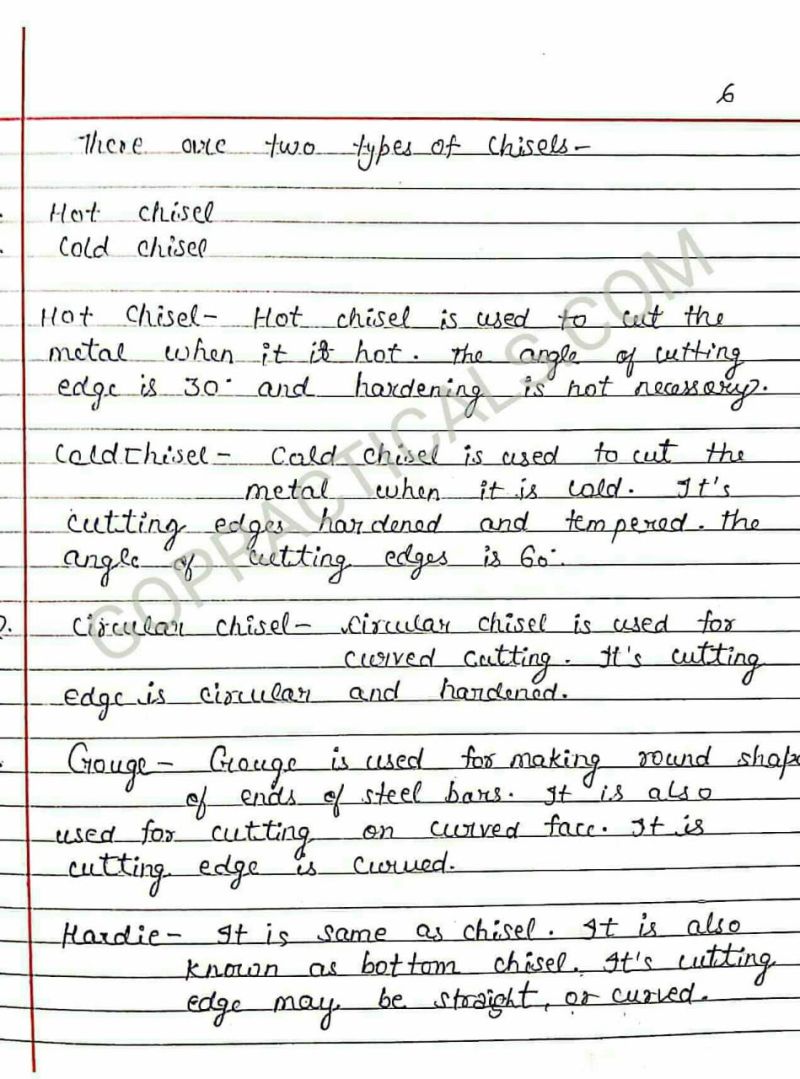 6
There are two types of Chisels-
Hot chisel
Cold chisel
Hot Chisel- Hot chisel is used to cut the
metal when it is hot. The angle of cutting
edge is 30° and hardening is not necessary.
Cold Chisel- Cold chisel is used to cut the
metal when it is cold. It's
cutting edges hardened and tempered. The
angle of cutting edges is 60°.
2. Circular chisel- Circular chisel is used for
curved cutting. It's cutting
edge is circular and hardened.
Gouge- Gouge is used for making round shap
of ends of steel bars. It is also
used for cutting on curved face. It is
cutting edge is Curved.
Hardie- It is same as chisel. It is also
known as bottom chisel. It's cutting
edge may be straight, or curved.
GOPRACTICALS.COM